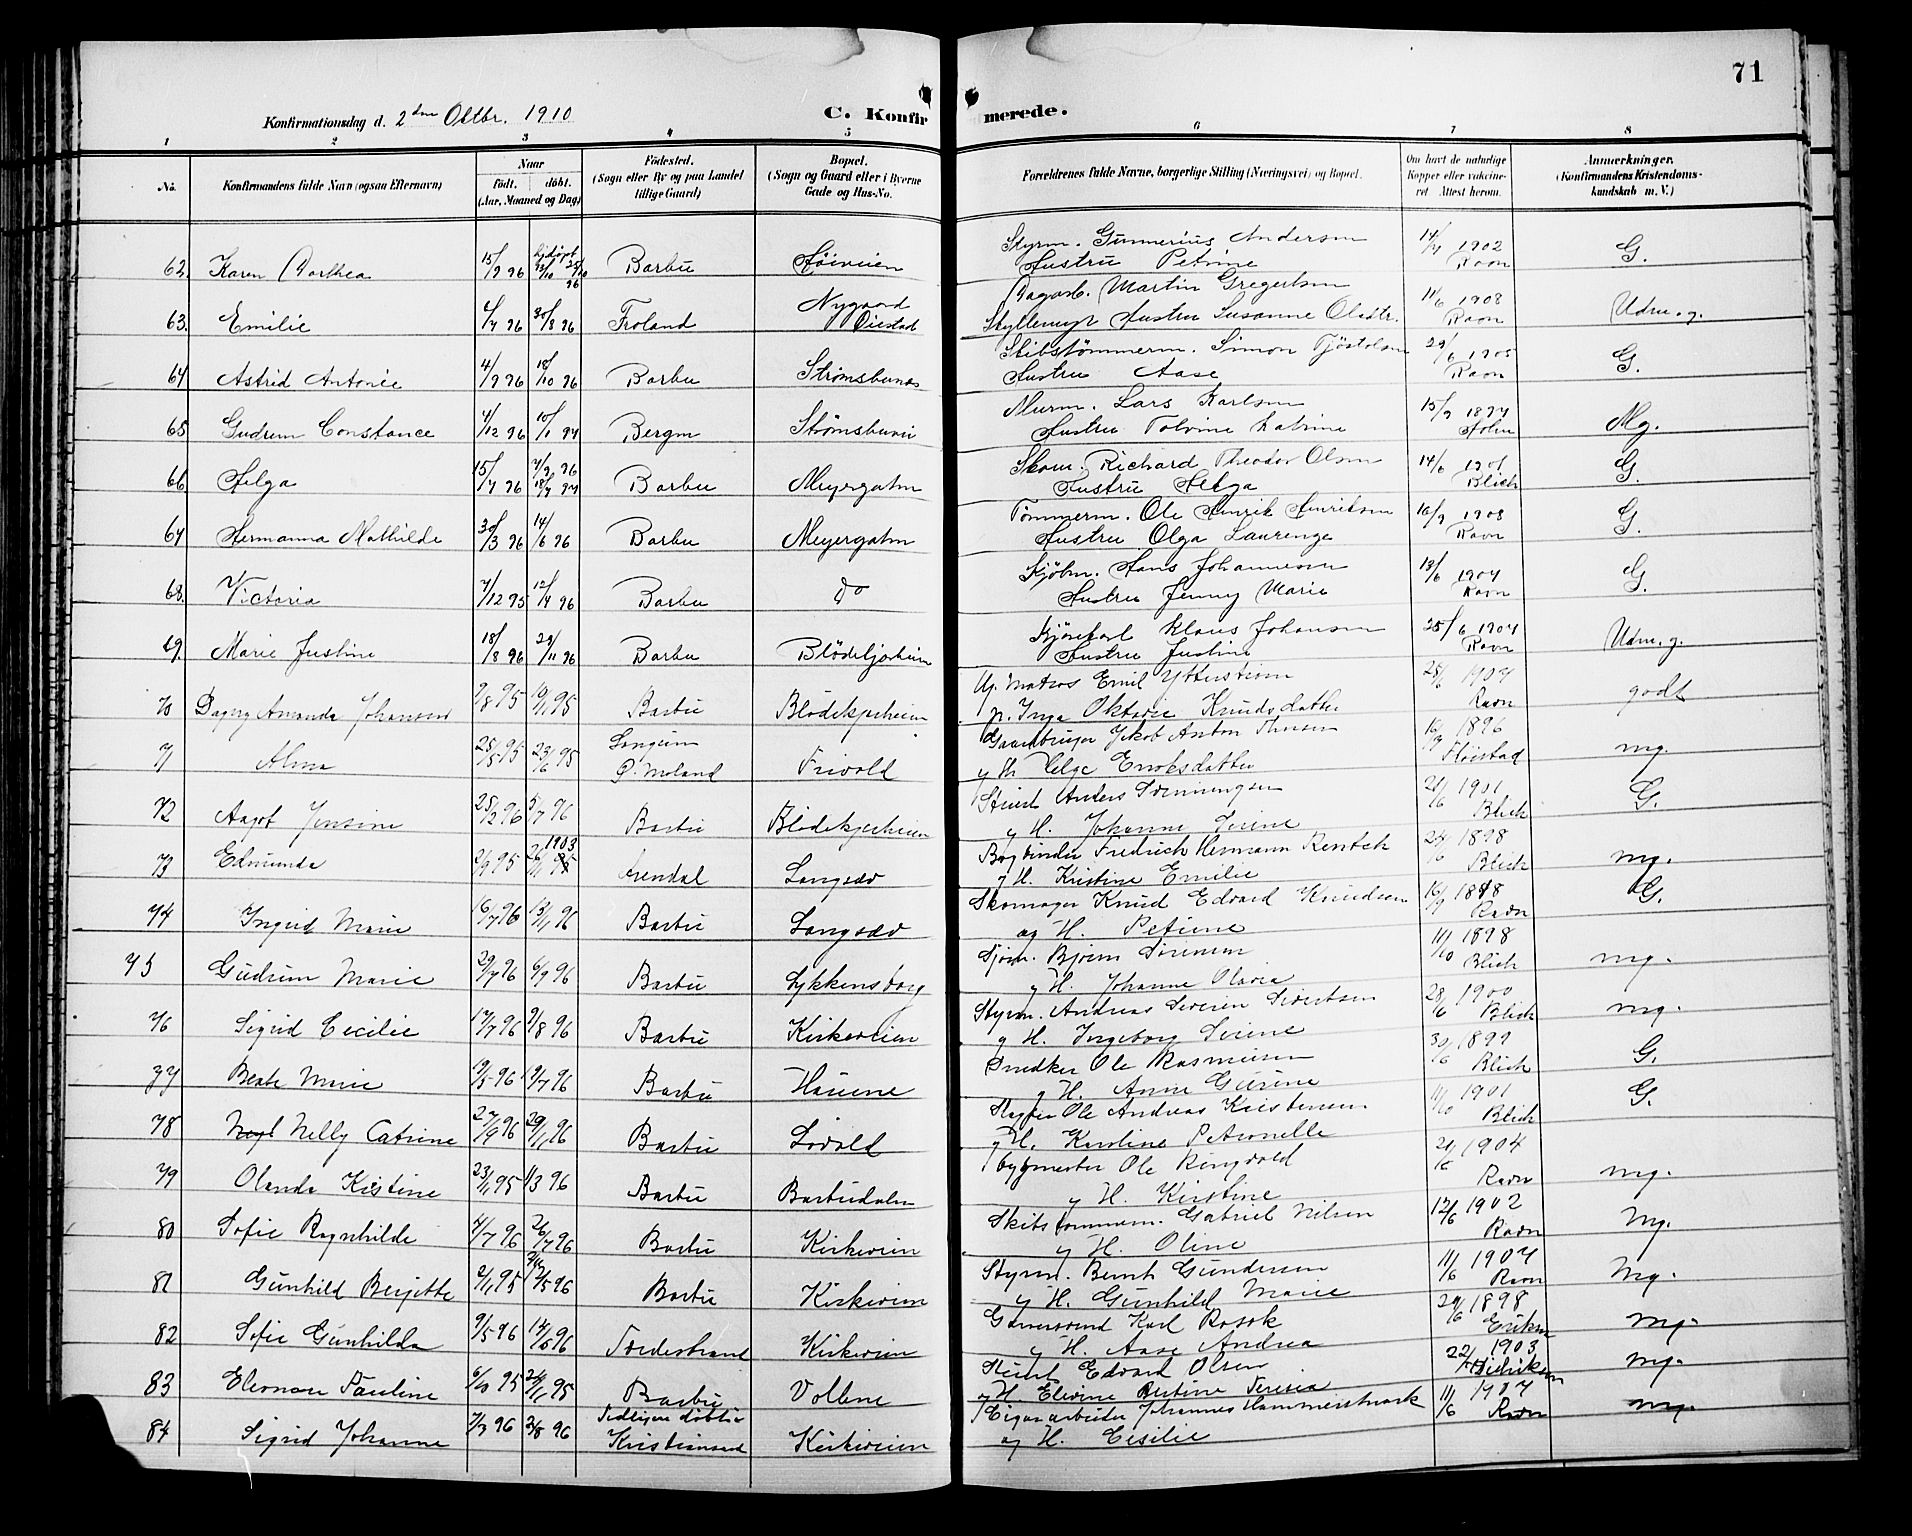 71
Konfirmationsdag d. 2den Oktbr. 1910
C. Konfirmerede.
1 2 3 4 5 6 7 8
No.
Konfirmandens fulde Navn (ogsaa Efternavn)
Naar
födt. döbt.
(Aar, Maaned og Dag)
Födested.
(Sogn eller By og paa Landet
tillige Gaard)
Bopæl.
(Sogn og Gaard eller i Byerne
Gade og Hus-No.
Forældrenes fulde Navne, borgerlige Stilling (Næringsvei) og Bopæl.
Om havt de naturlige
Kopper eller vakcine-
ret. Attest herom.
Anmerkninger.
(Konfirmandens Kristendoms-
kundskab m. V.)
62. Karen Dorthea 15/9 96 25/10 96 Barbu Höiveien Styrm. Gunnerius Andersen
Hustru Petrine 14/7 1902 Ravn G.
63. Emilie 4/7 96 30/8 96 Froland Nygaard Öiestad Dagarb. Martin Gregertsen
Hustru Susanne Olsdtr. 11/6 1908 Ravn Udm. g.
64 Astrid Antonie 4/9 96 18/10 96 Barbu Strömsbunes Skibstömmerm. Simon Tjöstolsen
Hustru Aase 29/6 1905 Ravn G.
65 Gudrun Constance 4/12 96 10/1 97 Bergen Strömsbuvei Murm. Lars Karlsen
Hustru Tolvine Katrine 15/9 1897 Mg.
66 Helga 15/7 96 18/7 97 Barbu Meyergaten Skom. Richard Theodor Olsen
Hustru Helga 14/6 1901 Blich G.
67 Hermanna Mathilde 30/3 96 14/6 96 Barbu Meyergaten Tömmerm. Ole Henrik Henriksen
Hustru Olga Laurenze 16/9 1908 Ravn G.
68. Victoria 7/12 95 12/4 96 Barbu do Kjöbm. Hans Johannesen
Hustru Jenny Marie 18/6 1904 Ravn G.
69. Marie Justine 18/8 96 29/11 96 Barbu Blödekjærheien Kjörekarl Klaus Johansen
Hustru Justine 25/6 1904 Ravn Udm. g.
70 Dagny Amanda Johansen 9/8 95 10/11 95 Barbu Blödekjærheien Matros Emil Ytterström
p. Inga Oktavie Knudsdatter 25/6 1904 Ravn godt
71 Alma 25/5 95 23/6 95 Langum Ö. Moland Frivold Gaardbruger Jakob Anton Thorsen
y H. Helge Eriksdatter 16/9 1896 Flöistad mg.
72 Aagot Jensine 25/2 96 5/7 96 Barbu Blödekjerheien Stuert Anders Svenningsen
y H. Johanne Serine 21/6 1901 Blich G.
73 Edmunda 2/9 95 1903 Arendal Langsæv Bogbinder Fredrich Hermann Rentsch
y H. Kristine Emilie 24/6 1898 Blich mg.
74 Ingrid Marie 16/7 96 Barbu Langsæv Skomager Knud Edvard Knudsen
og H. Petrine 16/9 1898 Ravn G.
75 Gudrun Marie 29/7 96 6/9 96 Barbu Lykkensborg Björn Sörensen
y H. Johanne Olava 11/10 1898 Blich mg.
76 Sigrid Cecilie 17/7 96 9/8 96 Barbu Kirkeveien Styrm. Andreas Severin Sivertsen
y H. Ingeborg Serine 28/6 1900 Blich mg.
77 Beate Marie 19/5 96 19/7 96 Barbu Havene Snedker Ole Rasmussen
y H. Anne Gurine 30/6 1899 Blich G.
78 Nelly Catrine 27/9 96 29/11 96 Barbu Solvold Slagter Ole Andreas Kristensen
y H. Karoline Petronelle 11/10 1901 Blich G.
79 Olanda Kristine 23/11 95 1/3 96 Barbu Barbudalen Bygmester Ole Ringvold
y H. Kirstine 21/6 1904 Ravn mg.
80 Sofie Ragnhilde 4/7 96 26/7 96 Barbu Kirkeveien Skibstömmerm. Gabriel Nilsen
y H. Oline 12/6 1902 Ravn Mg.
81 Gunhild Birgitte 2/11 95 Barbu Kirkeveien Styrm. Bernt Gundersen
y H. Gunhild Marie 11/6 1907 Ravn Mg.
82 Sofie Gunhilda 9/5 96 14/6 96 Tvedestrand Kirkeveien Garversvend Karl Rosok
y H. Aase Andrea 29/6 1898 Eriksen mg.
83 Eleonore Pauline 6/10 95 24/11 95 Barbu Vollene Stuert Edvard Olsen
y H. Elevine Bertine Teresia 22/1 1903 Didriksen mg.
84 Sigrid Johanne 7/3 96 2/8 96 Kristiansand Kirkeveien Cigararbeider Johannes Hammersmark
og H. Cecilie 11/6 1907 Ravn mg.